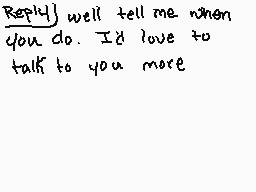 Reply} well tell me when
you do. I'd love to
talk to you more